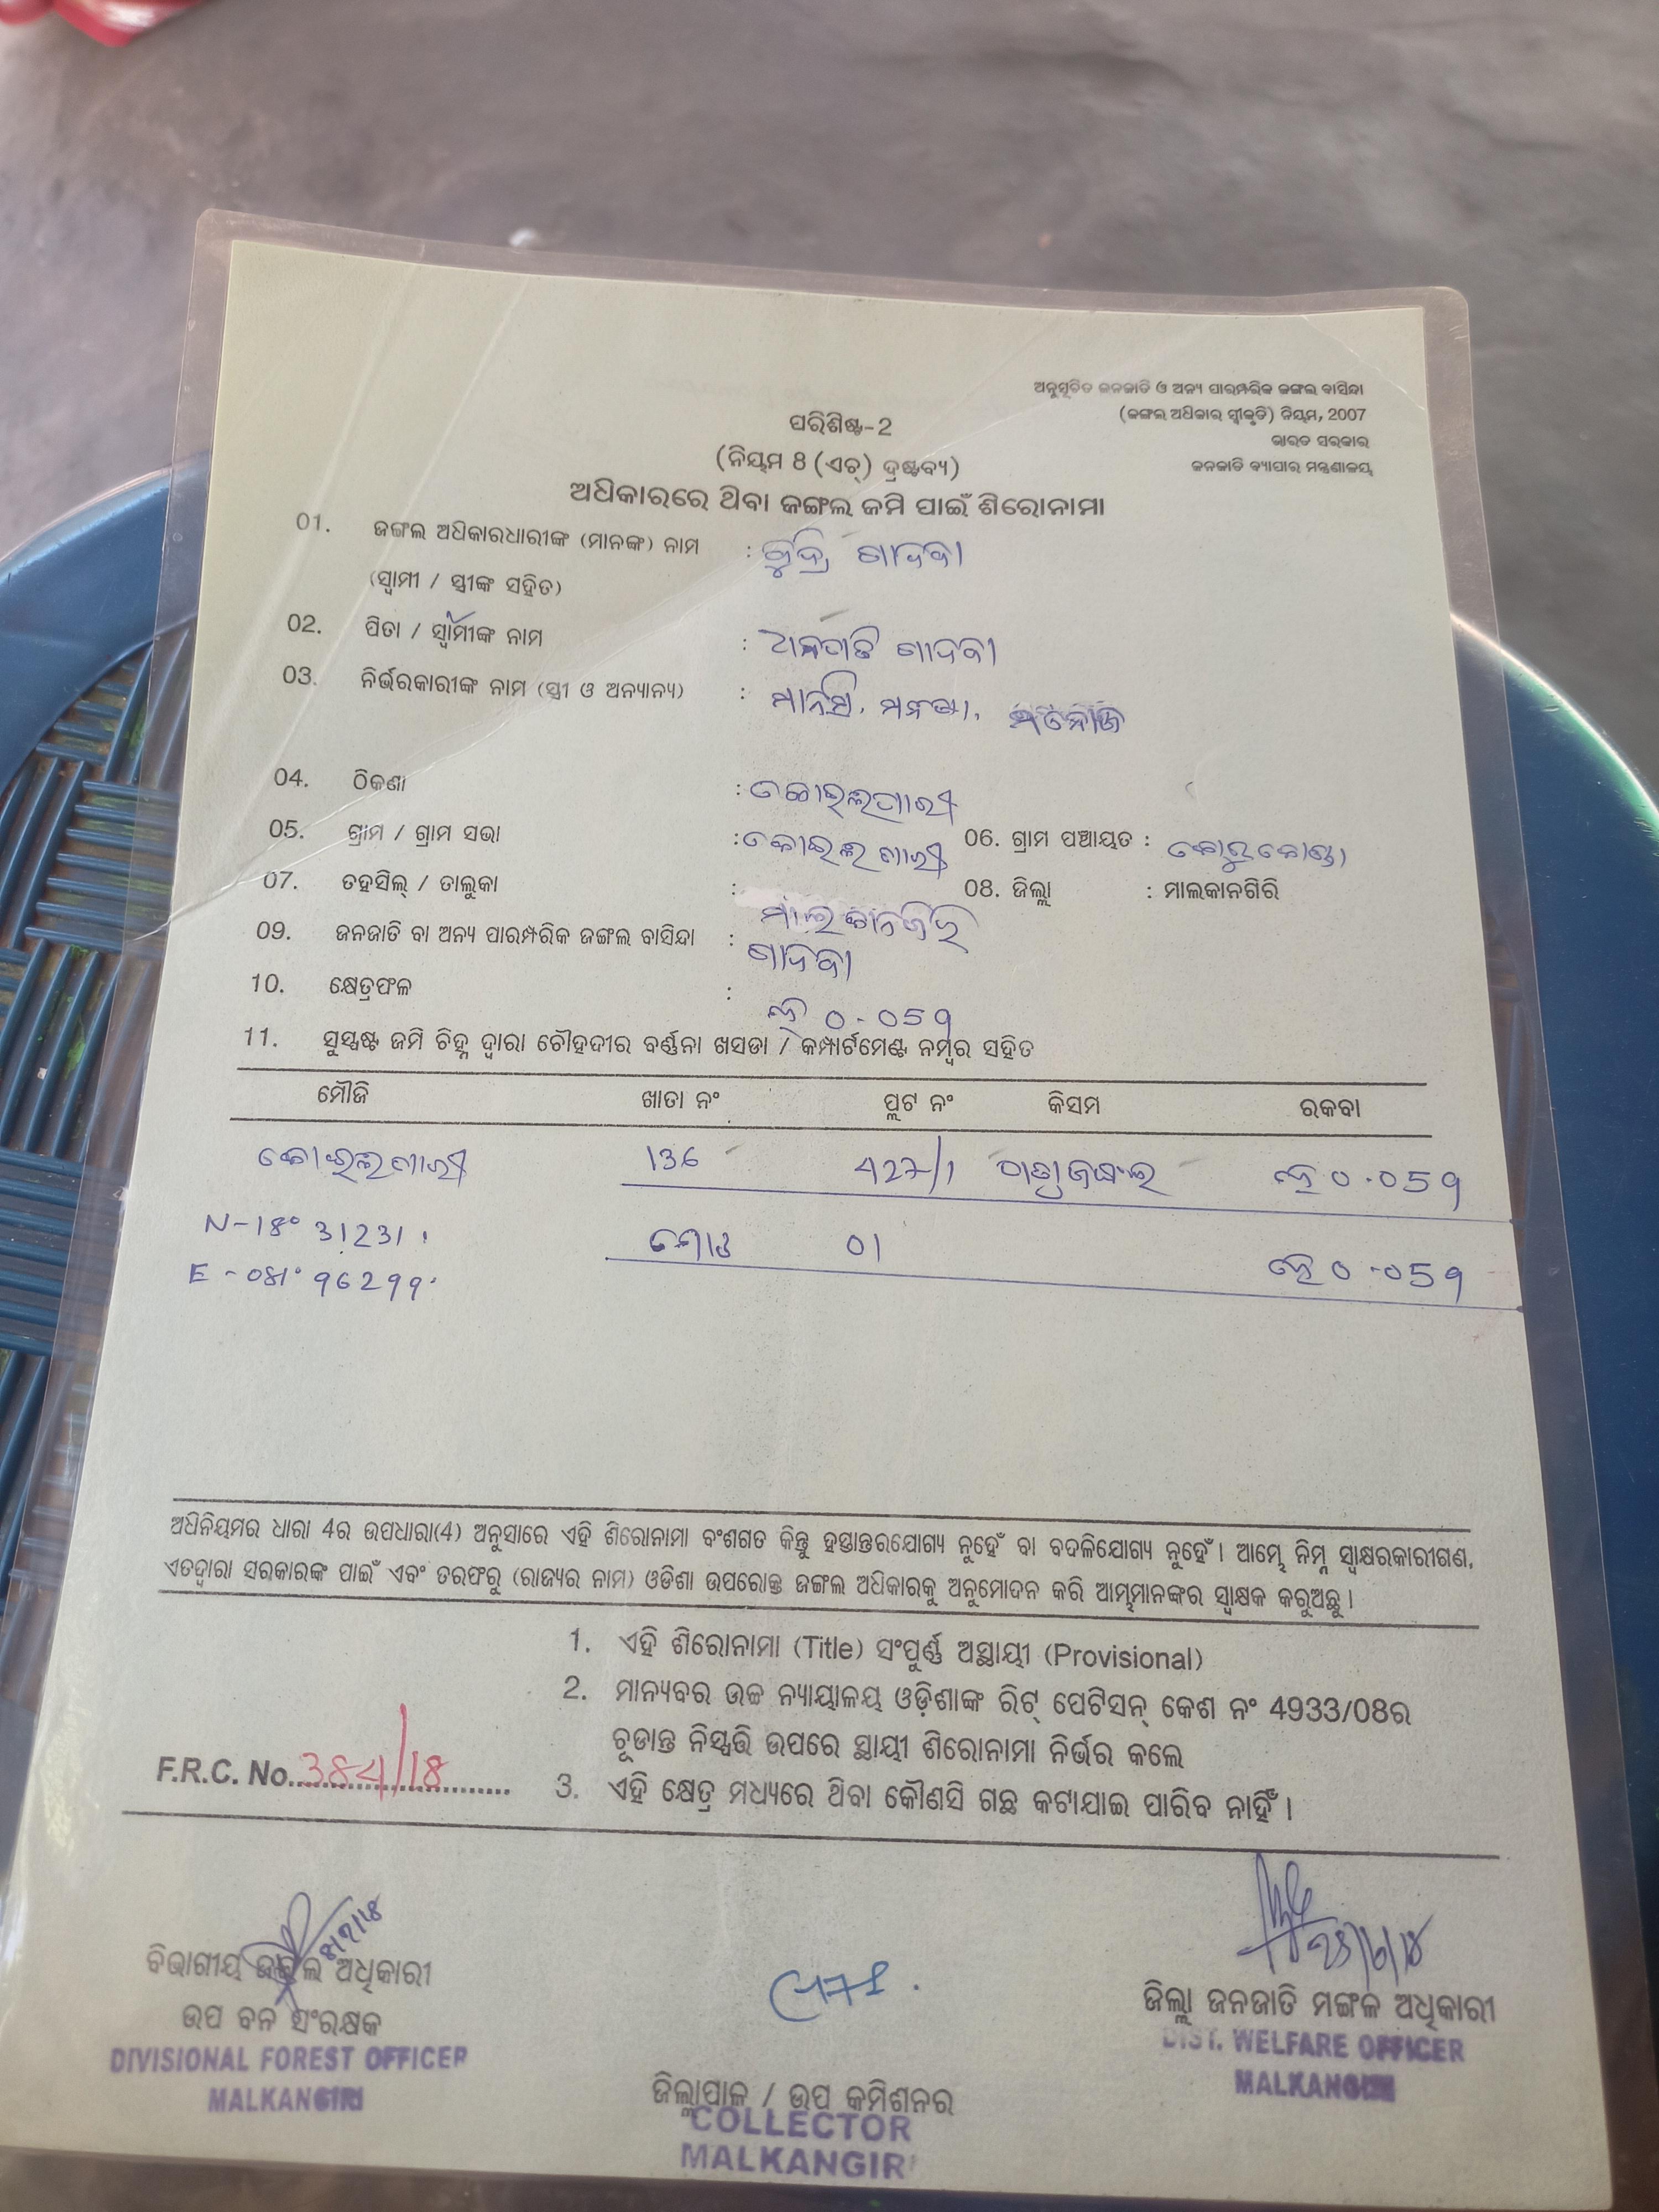 ଅନୁସୂଚିତ ଜନଜାତି ଓ ଅନ୍ୟ ପାରମ୍ପରିକ ଜଙ୍ଗଲ ବାସିନ୍ଦା
(ଜଙ୍ଗଲ ଅଧିକାର ସ୍ୱୀକୃତି) ନିୟମ, 2007
ଭାରତ ସରକାର
ଜନଜାତି ବ୍ୟାପାର ମନ୍ତ୍ରଣାଳୟ
ପରିଶିଷ୍ଟ-2
(ନିୟମ 8 (ଏଚ୍) ଦ୍ରଷ୍ଟବ୍ୟ)
ଅଧିକାରରେ ଥିବା ଜଙ୍ଗଲ ଜମି ପାଇଁ ଶିରୋନାମା
01. ଜଙ୍ଗଲ ଅଧିକାରଧାରୀଙ୍କ (ମାନଙ୍କ) ନାମ : ଗାଦବା
(ସ୍ୱାମୀ / ସ୍ତ୍ରୀଙ୍କ ସହିତ)
02. ପିତା / ସ୍ୱାମୀଙ୍କ ନାମ : ଗାଦବା
03. ନିର୍ଭରକାରୀଙ୍କ ନାମ (ସ୍ତ୍ରୀ ଓ ଅନ୍ୟାନ୍ୟ) :
04. ଠିକଣା : କୋଇଲଗାରୀ
05. ଗ୍ରାମ / ଗ୍ରାମ ସଭା : କୋଇଲଗାରୀ 06. ଗ୍ରାମ ପଞ୍ଚାୟତ : କୋରୁକୋଣ୍ଡା
07. ତହସିଲ୍ / ତାଲୁକା : ମାଲକାନଗିରି 08. ଜିଲ୍ଲା : ମାଲକାନଗିରି
09. ଜନଜାତି ବା ଅନ୍ୟ ପାରମ୍ପରିକ ଜଙ୍ଗଲ ବାସିନ୍ଦା : ଗାଦବା
10. କ୍ଷେତ୍ରଫଳ : ହେ 0.059
11. ସୁସ୍ପଷ୍ଟ ଜମି ଚିହ୍ନ ଦ୍ୱାରା ଚୌହଦୀର ବର୍ଣ୍ଣନା ଖସଡା / କମ୍ପାର୍ଟମେଣ୍ଟ ନମ୍ବର ସହିତ
ମୌଜି ଖାତା ନଂ ପ୍ଲଟ ନଂ କିସମ ରକବା
କୋଇଲଗାରୀ 136 427/1 ଜଙ୍ଗଲ ହେ 0.059
N-18° 31231'
ମୋଟ 01 ହେ 0.059
E-081° 96299'
ଅଧିନିୟମର ଧାରା 4ର ଉପଧାରା(4) ଅନୁସାରେ ଏହି ଶିରୋନାମା ବଂଶଗତ କିନ୍ତୁ ହସ୍ତାନ୍ତରଯୋଗ୍ୟ ନୁହେଁ ବା ବଦଳିଯୋଗ୍ୟ ନୁହେଁ। ଆମ୍ଭେ ନିମ୍ନ ସ୍ୱାକ୍ଷରକାରୀଗଣ,
ଏତଦ୍ୱାରା ସରକାରଙ୍କ ପାଇଁ ଏବଂ ତରଫରୁ (ରାଜ୍ୟର ନାମ) ଓଡିଶା ଉପରୋକ୍ତ ଜଙ୍ଗଲ ଅଧିକାରକୁ ଅନୁମୋଦନ କରି ଆମ୍ଭମାନଙ୍କର ସ୍ୱାକ୍ଷକ କରୁଅଛୁ।
1. ଏହି ଶିରୋନାମା (Title) ସଂପୁର୍ଣ୍ଣ ଅସ୍ଥାୟୀ (Provisional)
2. ମାନ୍ୟବର ଉଚ୍ଚ ନ୍ୟାୟାଳୟ ଓଡ଼ିଶାଙ୍କ ରିଟ୍ ପେଟିସନ୍ କେଶ ନଂ 4933/08ର
ଚୂଡାନ୍ତ ନିସ୍ପତ୍ତି ଉପରେ ସ୍ଥାୟୀ ଶିରୋନାମା ନିର୍ଭର କଲେ
F.R.C. No. 384/18
3. ଏହି କ୍ଷେତ୍ର ମଧ୍ୟରେ ଥିବା କୌଣସି ଗଛ କଟାଯାଇ ପାରିବ ନାହିଁ।
ବିଭାଗୀୟ ଜଙ୍ଗଲ ଅଧିକାରୀ
ଉପ ବନ ସଂରକ୍ଷକ
DIVISIONAL FOREST OFFICER
MALKANGIRI
ଜିଲ୍ଲାପାଳ / ଉପ କମିଶନର
COLLECTOR
MALKANGIRI
ଜିଲ୍ଲା ଜନଜାତି ମଙ୍ଗଳ ଅଧିକାରୀ
DIST. WELFARE OFFICER
MALKANGIRI